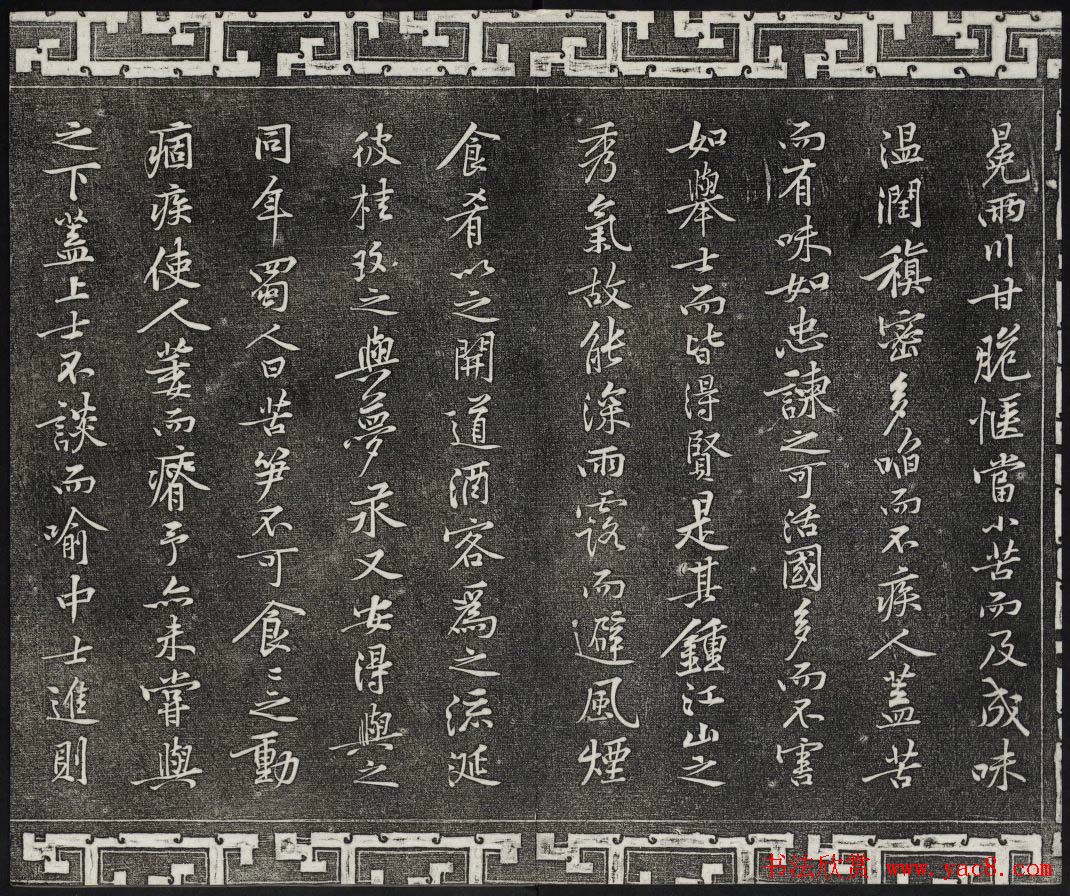 冕兩川甘脆愜當小苦而及成味
溫潤稹密多啗而不疾人蓋苦
而有味如忠諫之可活國多而不害
如舉士而皆得賢是其鍾江山之
秀氣故能深雨露而避風煙
食肴以之開道酒客爲之流涎
彼桂玫之與夢汞又安得與之
同年蜀人曰苦笋不可食〻之動
痼疾使人萎而瘠予亦未甞與
之下蓋上士不談而喻中士進則
书法欣赏 www.yac8.com